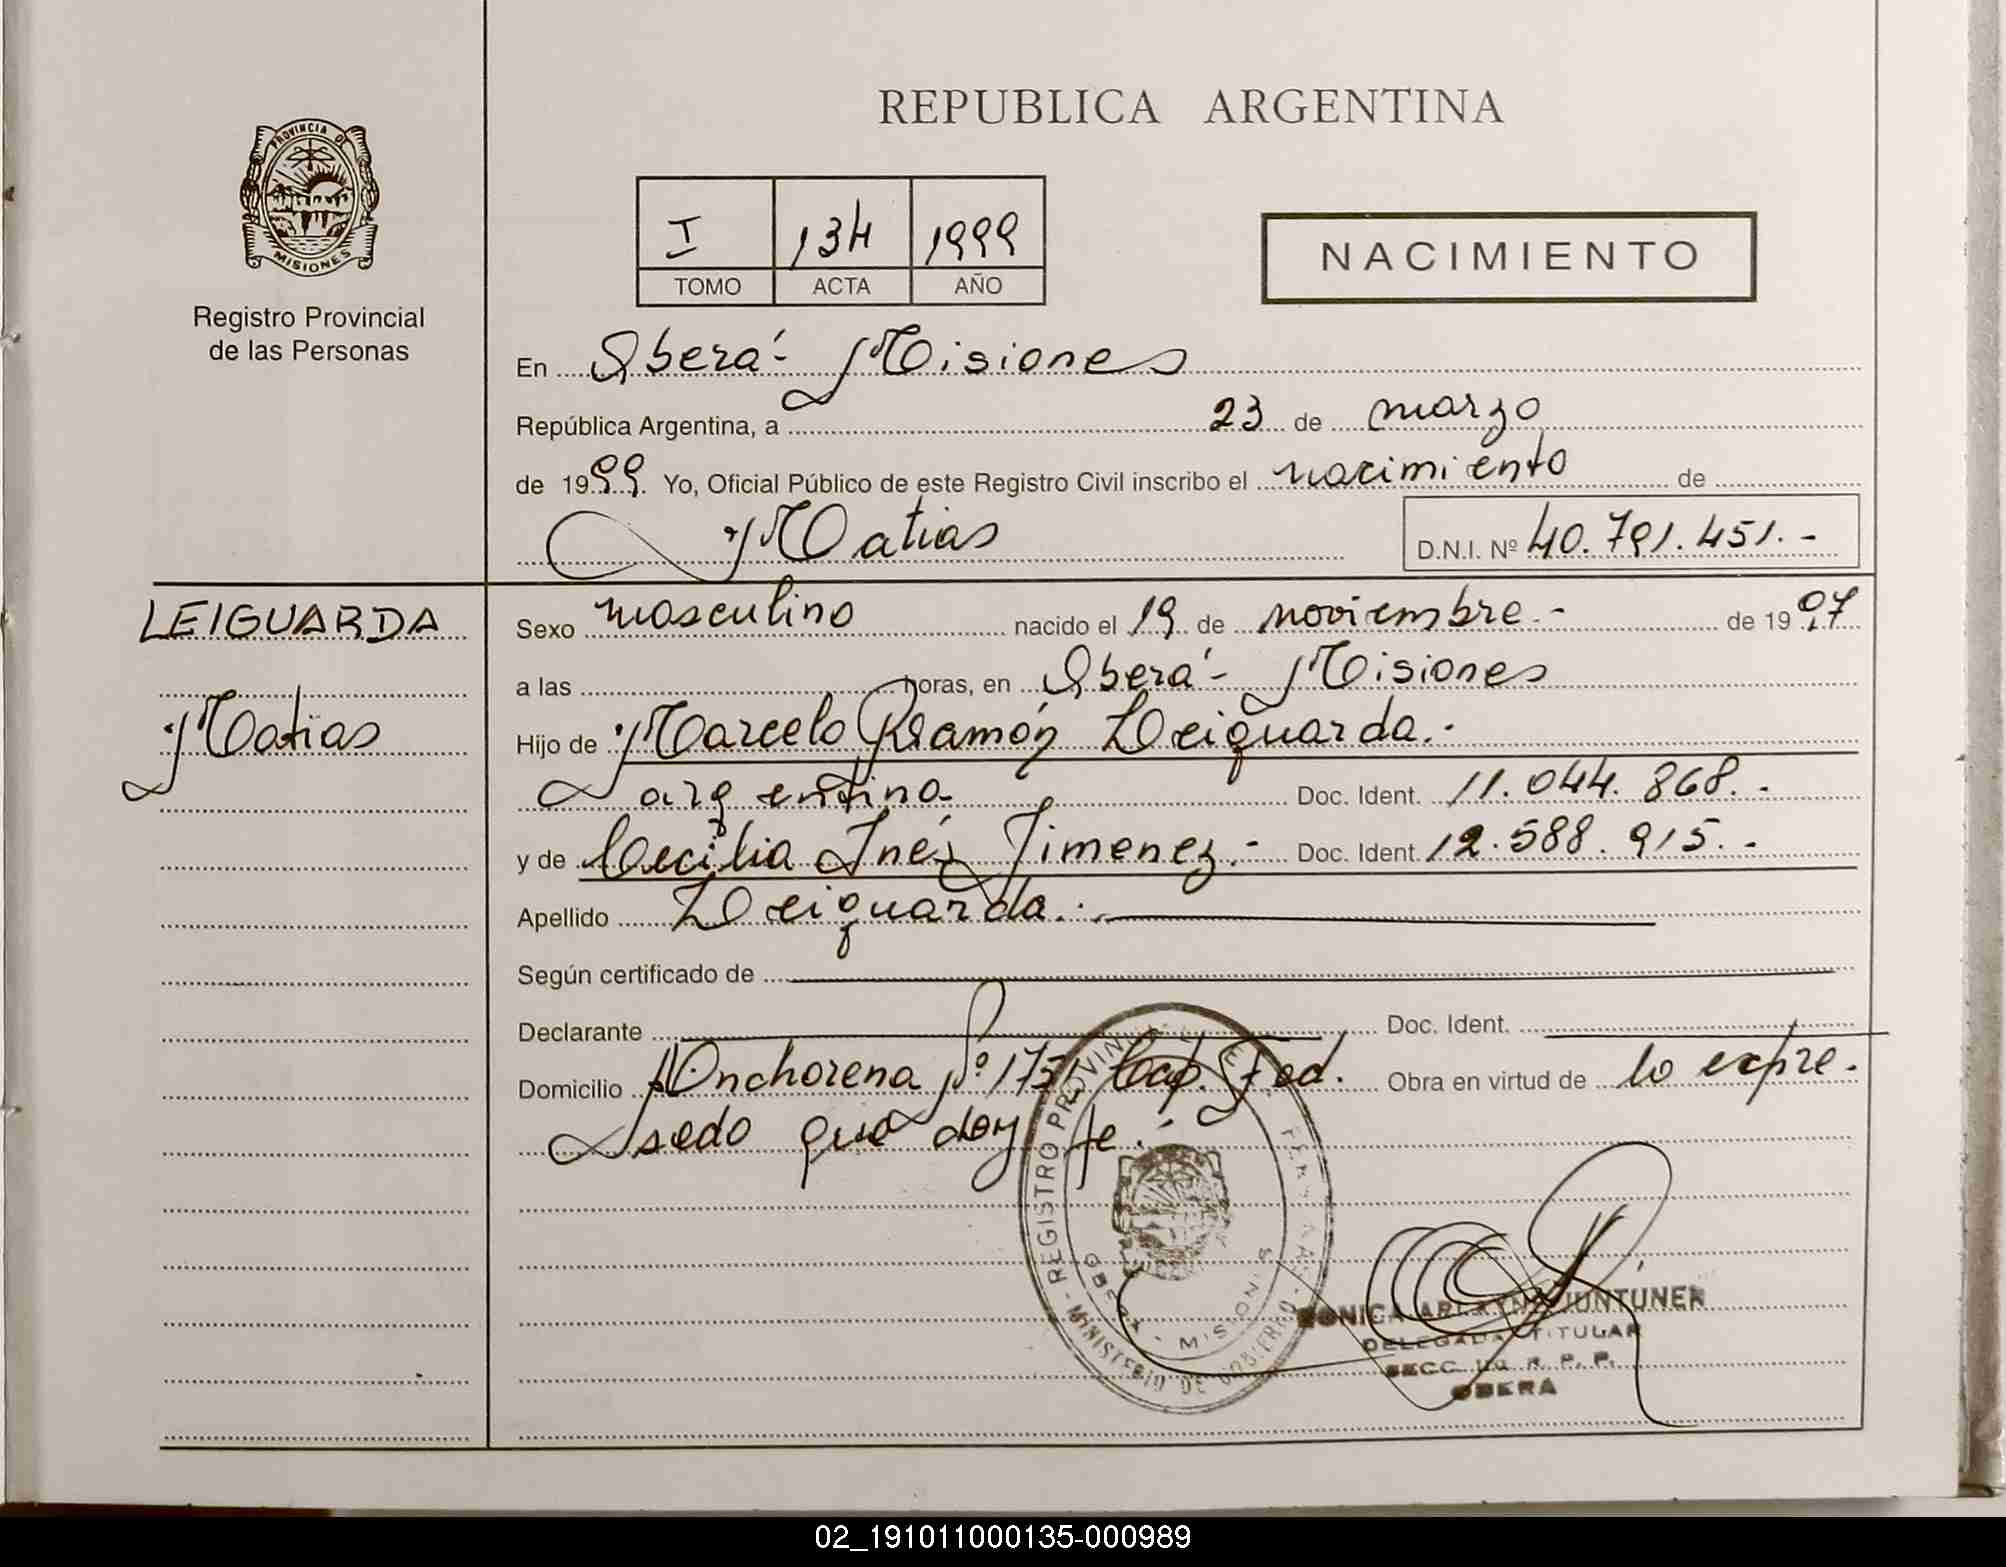 PROVINCIA DE
MISIONES
Registro Provincial
de las Personas
REPUBLICA ARGENTINA
I 134 1999
TOMO ACTA AÑO
NACIMIENTO
En Oberá - Misiones
República Argentina, a 23 de marzo
de 1999. Yo, Oficial Público de este Registro Civil inscribo el nacimiento de
Matias D.N.I. Nº 40.791.451.-
LEIGUARDA
Matias
Sexo masculino nacido el 19 de noviembre.- de 1997
a las horas, en Oberá - Misiones
Hijo de Marcelo Ramón Leiguarda.-
argentina Doc. Ident. 11.044.868.-
y de Cecilia Inés Jimenez.- Doc. Ident 12.588.915.-
Apellido Leiguarda.-
Según certificado de
Declarante Doc. Ident.
Domicilio Anchorena Nº Cap. Fed. Obra en virtud de lo expre-
sado que doy fe.-
REGISTRO PROVINCIAL DE
MINISTERIO DE GOBIERNO
OBERA - MISIONES
JUNTUNEN
DELEGADA TITULAR
SECC. R. P. P.
OBERA
02_191011000135-000989